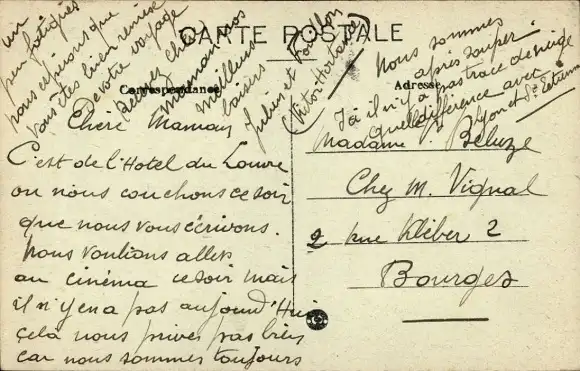 CARTE POSTALE
Correspondance
Adresse
Chère Maman
C'est de l'Hotel du Louvre
ou nous couchons ce soir
que nous vous écrivons.
Nous voulions aller
au cinéma ce soir mais
il n'y en a pas aujourd'Hui
cela nous prive pas bien
car nous sommes toujours
un
peu fatigués
nous espérons que
vous êtes bien remise
de votre voyage
Recevez chère
Maman nos
meilleurs
baisers
Julien et
Nous sommes
après souper.
Ià il n'y a pas trace de neige
Quelle différence avec
Lyon et St Etienne
Madame P. Beluze
Chez M. Vignal
2 rue Kléber 2
Bourges